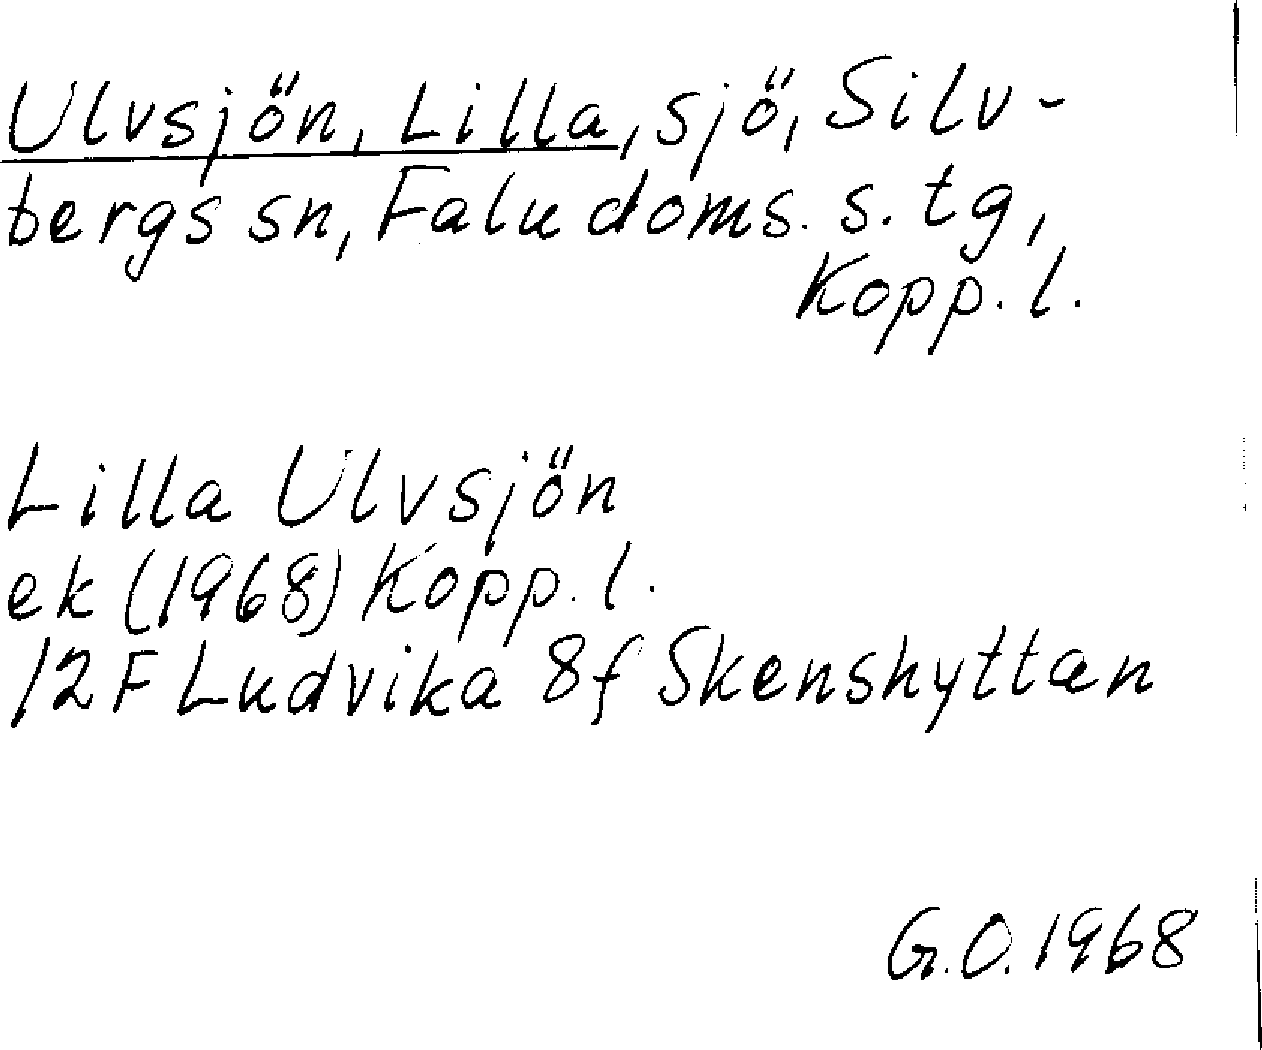 Ulvsjön, Lilla, sjö, Silv-
bergs sn, Falu doms. s. tg,
Kopp. l.
Lilla Ulvsjön
ek (1968) Kopp. l.
12F Ludvika 8f Skenshyttan
G.O. 1968